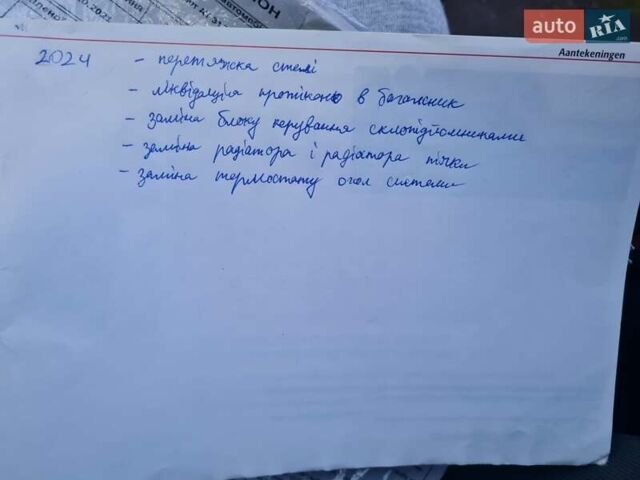 auto RIA .com
Aantekeningen
2024 - перетяжка стелі
- ліквідація протікань в багажник
- заміна блоку керування склопідіомниками
- заміна радіатора і радіатора пічки
- заміна термостату охол системи